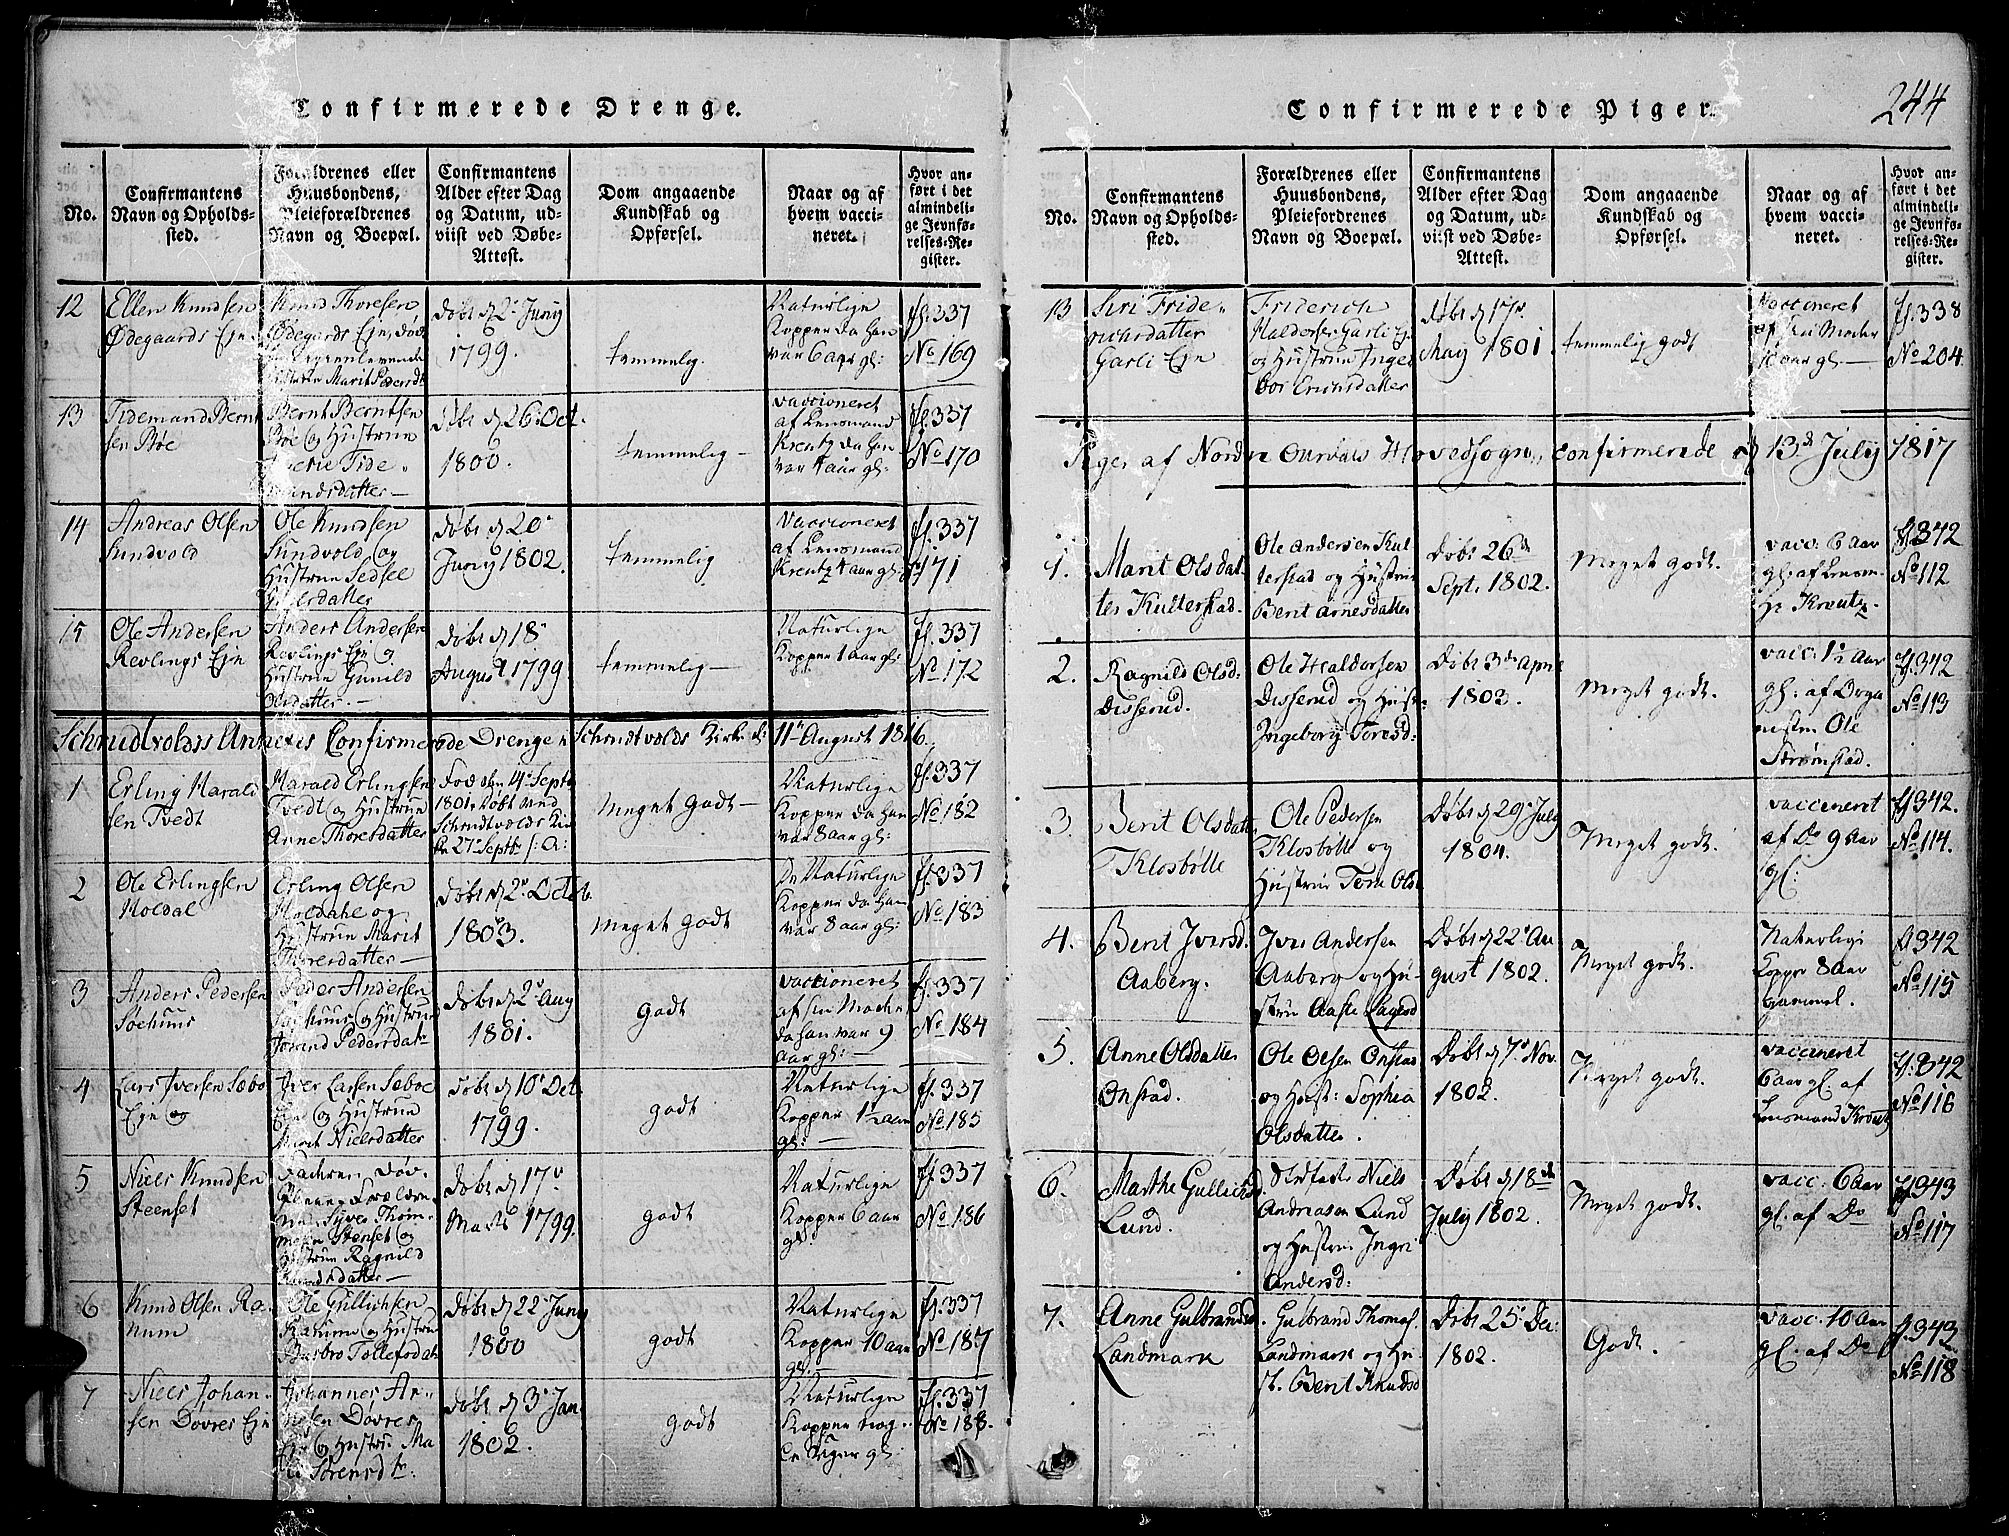 244
Confirmerede Drenge.
No.
Confirmantens Navn og Opholds-sted.
Forældrenes eller Huusbondens, Pleieforældrenes Navn og Boepæl.
Confirmantens Alder efter Dag og Datum, ud-viist ved Døbe-Attest.
Dom angaaende Kundskab og Opførsel.
Naar og af hvem vacci-neret.
Hvor an-ført i det almindeli-ge Jevnfø-relses-Re-gister.
12
Ellen Knudsen
Ødegaards Eje
Knud Thoresen
Ødegards Eje, død
Marit
døbt d 2 Juny
1799.
temmelig.
Naturlige
Kopper da han
var 6 aar gl:
fl. 337
No 169
13
Tidemand Bernt
sen Bøe
Bernt Berntsen
Bøe og Hustrue
Tide
mandsdatter
døbt d 26 Oct.
1800.
temmelig
vaccioneret
af Lensmand
Kreutz da han
var 4 aar gl:
fl. 337
No 170
14
Andreas Olsen
Sundvold
Ole Knudsen
Sundvold og
Hustrue Sidsel
døbt d 20
Juny 1802.
temmelig
vaccioneret
af Lensmand
Kreutz 4 aar gl:
fl. 337
171
15
Ole Andersen
Revlings Eje
Anders Andersen
Revlings Eje og
Hustrue Gunild
Olsdatter.
døbt d 18
August 1799
temmelig
Naturlige
Kopper 1 aar gl:
fl. 337
No 172
Confirmerede Drenge i Schrudtvolds Kirke d: 11 August 1816.
1
Erling Harald
sen Tvedt
Harald Erlingsen
Tvedt og Hustrue
Anne Thoresdatter
Fød den 14 Septb
1801, døbt ved
Schrudtvolds Kir
ke 27 Septbr
meget godt
Naturlige
Kopper da han
var 8 aar gl:
fl. 337
No 182
2
Ole Erlingsen
Moldal
Erling Olsen
Moldahl og
Hustrue Marit
Thoresdatter
døbt d 2 Octob
1803.
meget godt
De Naturlige
Kopper da han
var 8 aar gl:
fl. 337
No 183
3
Anders Pedersen
Søehuus
Peder Andersen
Søehuus og Hustrue
Jørand Pedersdatr
døbt d 2 Aug
1801.
godt
vaccioneret
af sin Moder
da han var 9
aar gl:
fl. 337
No 184
4
Lars Iversen Sæbo
Eje
Iver Larsen Sæboe
Eje og Hustrue
Marit Nielsdatter
døbt d 10 Oct
1799.
godt
Naturlige
Kopper 1½ aar
gl:
fl. 337
No 185
5
Niels Knudsen
Steenset
Forældre
Syver Thom
Stenset og
Hustrue Ragnild
Knudsdatter
døbt d 17
Marts 1799.
godt
Naturlige
Kopper 6 aar
gl:
fl. 337
No 186
6
Knud Olsen Ra
num
Ole Gullichsen
Ranum og Hustrue
Barbro Tollefsdatr
døbt d 22 Juny
1800
godt
Naturlige
Kopper 10 aar
gl:
fl. 337
No 187
7
Niels Johan
sen Døvres Eje
Johannes Ar
nesen Døvres
Eje og Hustr: Ma
rit Sørensdtr
døbt d 3 Jan
1802.
godt
Naturlige
Kopper nog
le Uger gl:
fl. 337
No 188.
Confirmerede Piger.
No.
Confirmantens Navn og Opholds-sted.
Forældrenes eller Huusbondens, Pleiefordrenes Navn og Boepæl.
Confirmantens Alder efter Dag og Datum, ud-viist ved Døbe-Attest.
Dom angaaende Kundskab og Opførsel.
Naar og af hvem vacci-neret.
Hvor an-ført i det almindeli-ge Jevnfø-relses-Re-gister.
13
Siri Fride
richsdatter
Garli Eje
Friderich
Haldorsen Garli Eje
og Hustrue Inge
bor Erichsdatter
døbt d 17
Maj 1801.
temmelig godt
Vaccineret
af sin Moder
10 aar gl
fl. 338
No 204
Piger af Nordre Ourdals Hovedsogn, confirmerede d 13de July 1817
1.
Marit Olsdat
ter Kulterstad.
Ole Andersen Kul
terstad og Hustrue
Berit Arnesdatter
Døbt 26de
Sept. 1802.
Meget godt.
vacc. 6 Aar
gl: af Lensm.
Hr. Kreutz.
fl. 342
No 112
2.
Ragnild Olsd:
Disserud.
Ole Haldorsen
Disserud og Hust:
Ingeborg Toresd:
Døbt 3de April
1803.
Meget godt.
vacc: 1½ Aar
gl: af Orga
nisten Ole
Strømstad.
fl. 342
No 113
3.
Berit Olsdatter
Klosbølle
Ole Pedersen
Klosbølle og
Hustrue Tone Olsd
Døbt d 29 July
1804.
Meget godt.
vaccineret
af Do 9 Aar
gl:
fl. 342.
No 114.
4.
Berit Iversd.
Aaberg.
Iver Andersen
Aaberg og Hu-
strue Aaste
Døbt d 22 Au
gust 1802.
Meget godt.
Naturlige
Kopper 8 Aar
gammel.
fl. 342
No 115
5.
Anne Olsdatter
Onstad.
Ole Olsen Onstad
og Hust: Sophia
Olsdatter.
Døbt d 7 Nov.
1802.
Meget godt.
vaccineret
6 aar gl: af
Lensmand Kreutz
fl. 342
No 116
6.
Marthe Gullichsd
Lund.
Niels
Andreasen Lund
og Hustrue Ingri
Andersd:
Døbt d 18de
July 1802.
Meget godt.
vacc: 6 Aar
gl. af Do
fl. 343
No 117
7.
Anne Gulbrandsd
Landmark
Gulbrand Thomas.
Landmark og Hu
st. Berit Knudsd
Døbt 25 Dec:
1802.
Godt.
vacc. 10 Aar
gl. af Do
fl. 343
No 118